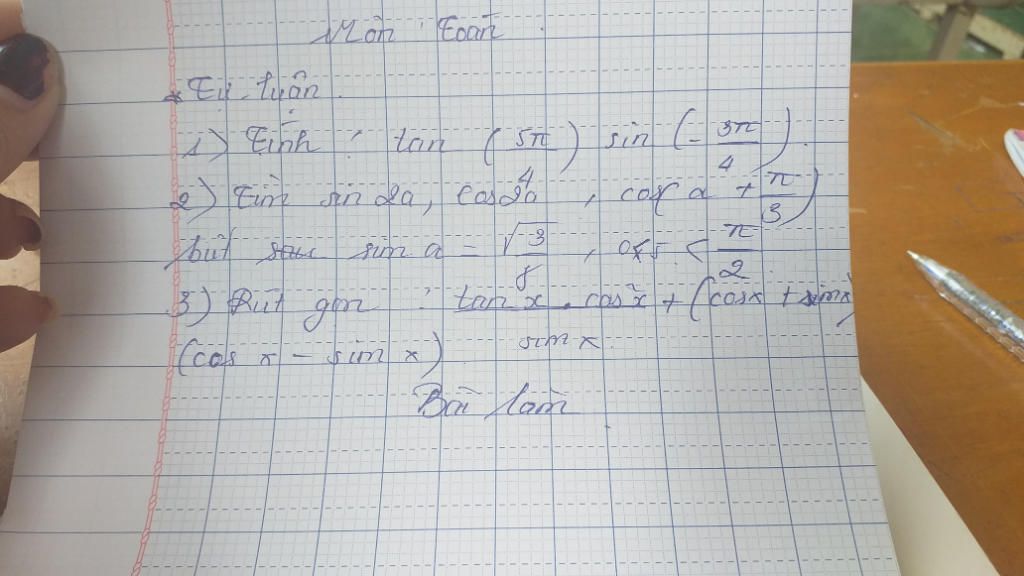 Môn : Toán
* Tự luận
1) Tính : tan (5π/4) sin (- 3π/4)
2) Tính sin 2a, cos 2a, cos( a + π/3)
biết sin a = √3/8 , < π/2
3) Rút gọn : tan x . cos²x / sin x + (cosx + sinx)
(cos x - sin x)
Bài làm